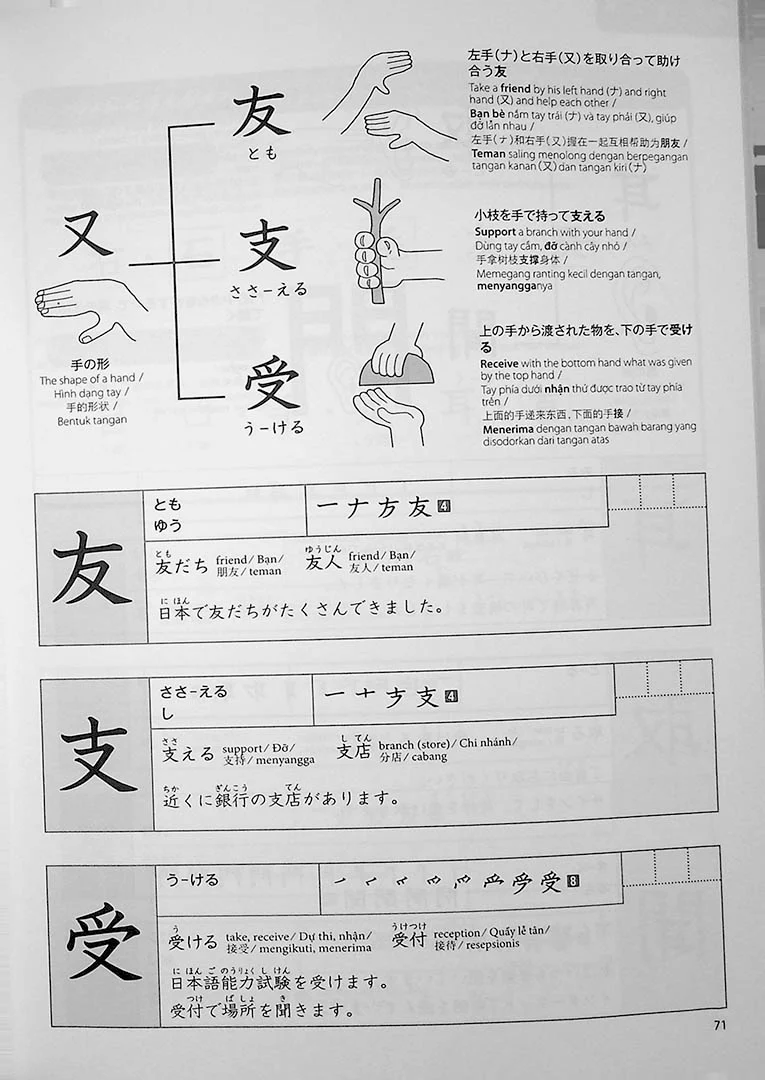 左手(ナ)と右手(又)を取り合って助け
合う友
Take a friend by his left hand (ナ) and right
hand (又) and help each other /
Bạn bè nắm tay trái (ナ) và tay phải (又), giúp
đỡ lẫn nhau /
左手(ナ)和右手(又)握在一起互相帮助为朋友 /
Teman saling menolong dengan berpegangan
tangan kanan (又) dan tangan kiri (ナ)
友
とも
小枝を手で持って支える
Support a branch with your hand /
Dùng tay cầm, đỡ cành cây nhỏ /
手拿树枝支撑身体 /
Memegang ranting kecil dengan tangan,
menyangganya
支
ささ-える
又
手の形
The shape of a hand /
Hình dạng tay /
手的形状 /
Bentuk tangan
上の手から渡された物を、下の手で受け
る
Receive with the bottom hand what was given
by the top hand /
Tay phía dưới nhận thứ được trao từ tay phía
trên /
上面的手递来东西,下面的手接 /
Menerima dengan tangan bawah barang yang
disodorkan dari tangan atas
受
う-ける
友
とも
ゆう
一ナ方友4
とも ゆうじん
友だち friend/ Bạn/ 朋友/ teman 友人 friend/ Bạn/ 友人/ teman
に ほん
日本で友だちがたくさんできました。
支
ささ-える
し
一十支4
ささ し てん
支える support/ Đỡ/ 支持/ menyangga 支店 branch (store)/ Chi nhánh/ 分店/ cabang
ちか ぎんこう てん
近くに銀行の支店があります。
受
う-ける
受8
う うけつけ
受ける take, receive/ Dự thi, nhận/ 接受/ mengikuti, menerima 受付 reception/ Quầy lễ tân/ 接待/ resepsionis
に ほん ご のうりょく し けん
日本語能力試験を受けます。
つけ ば しょ き
受付で場所を聞きます。
71